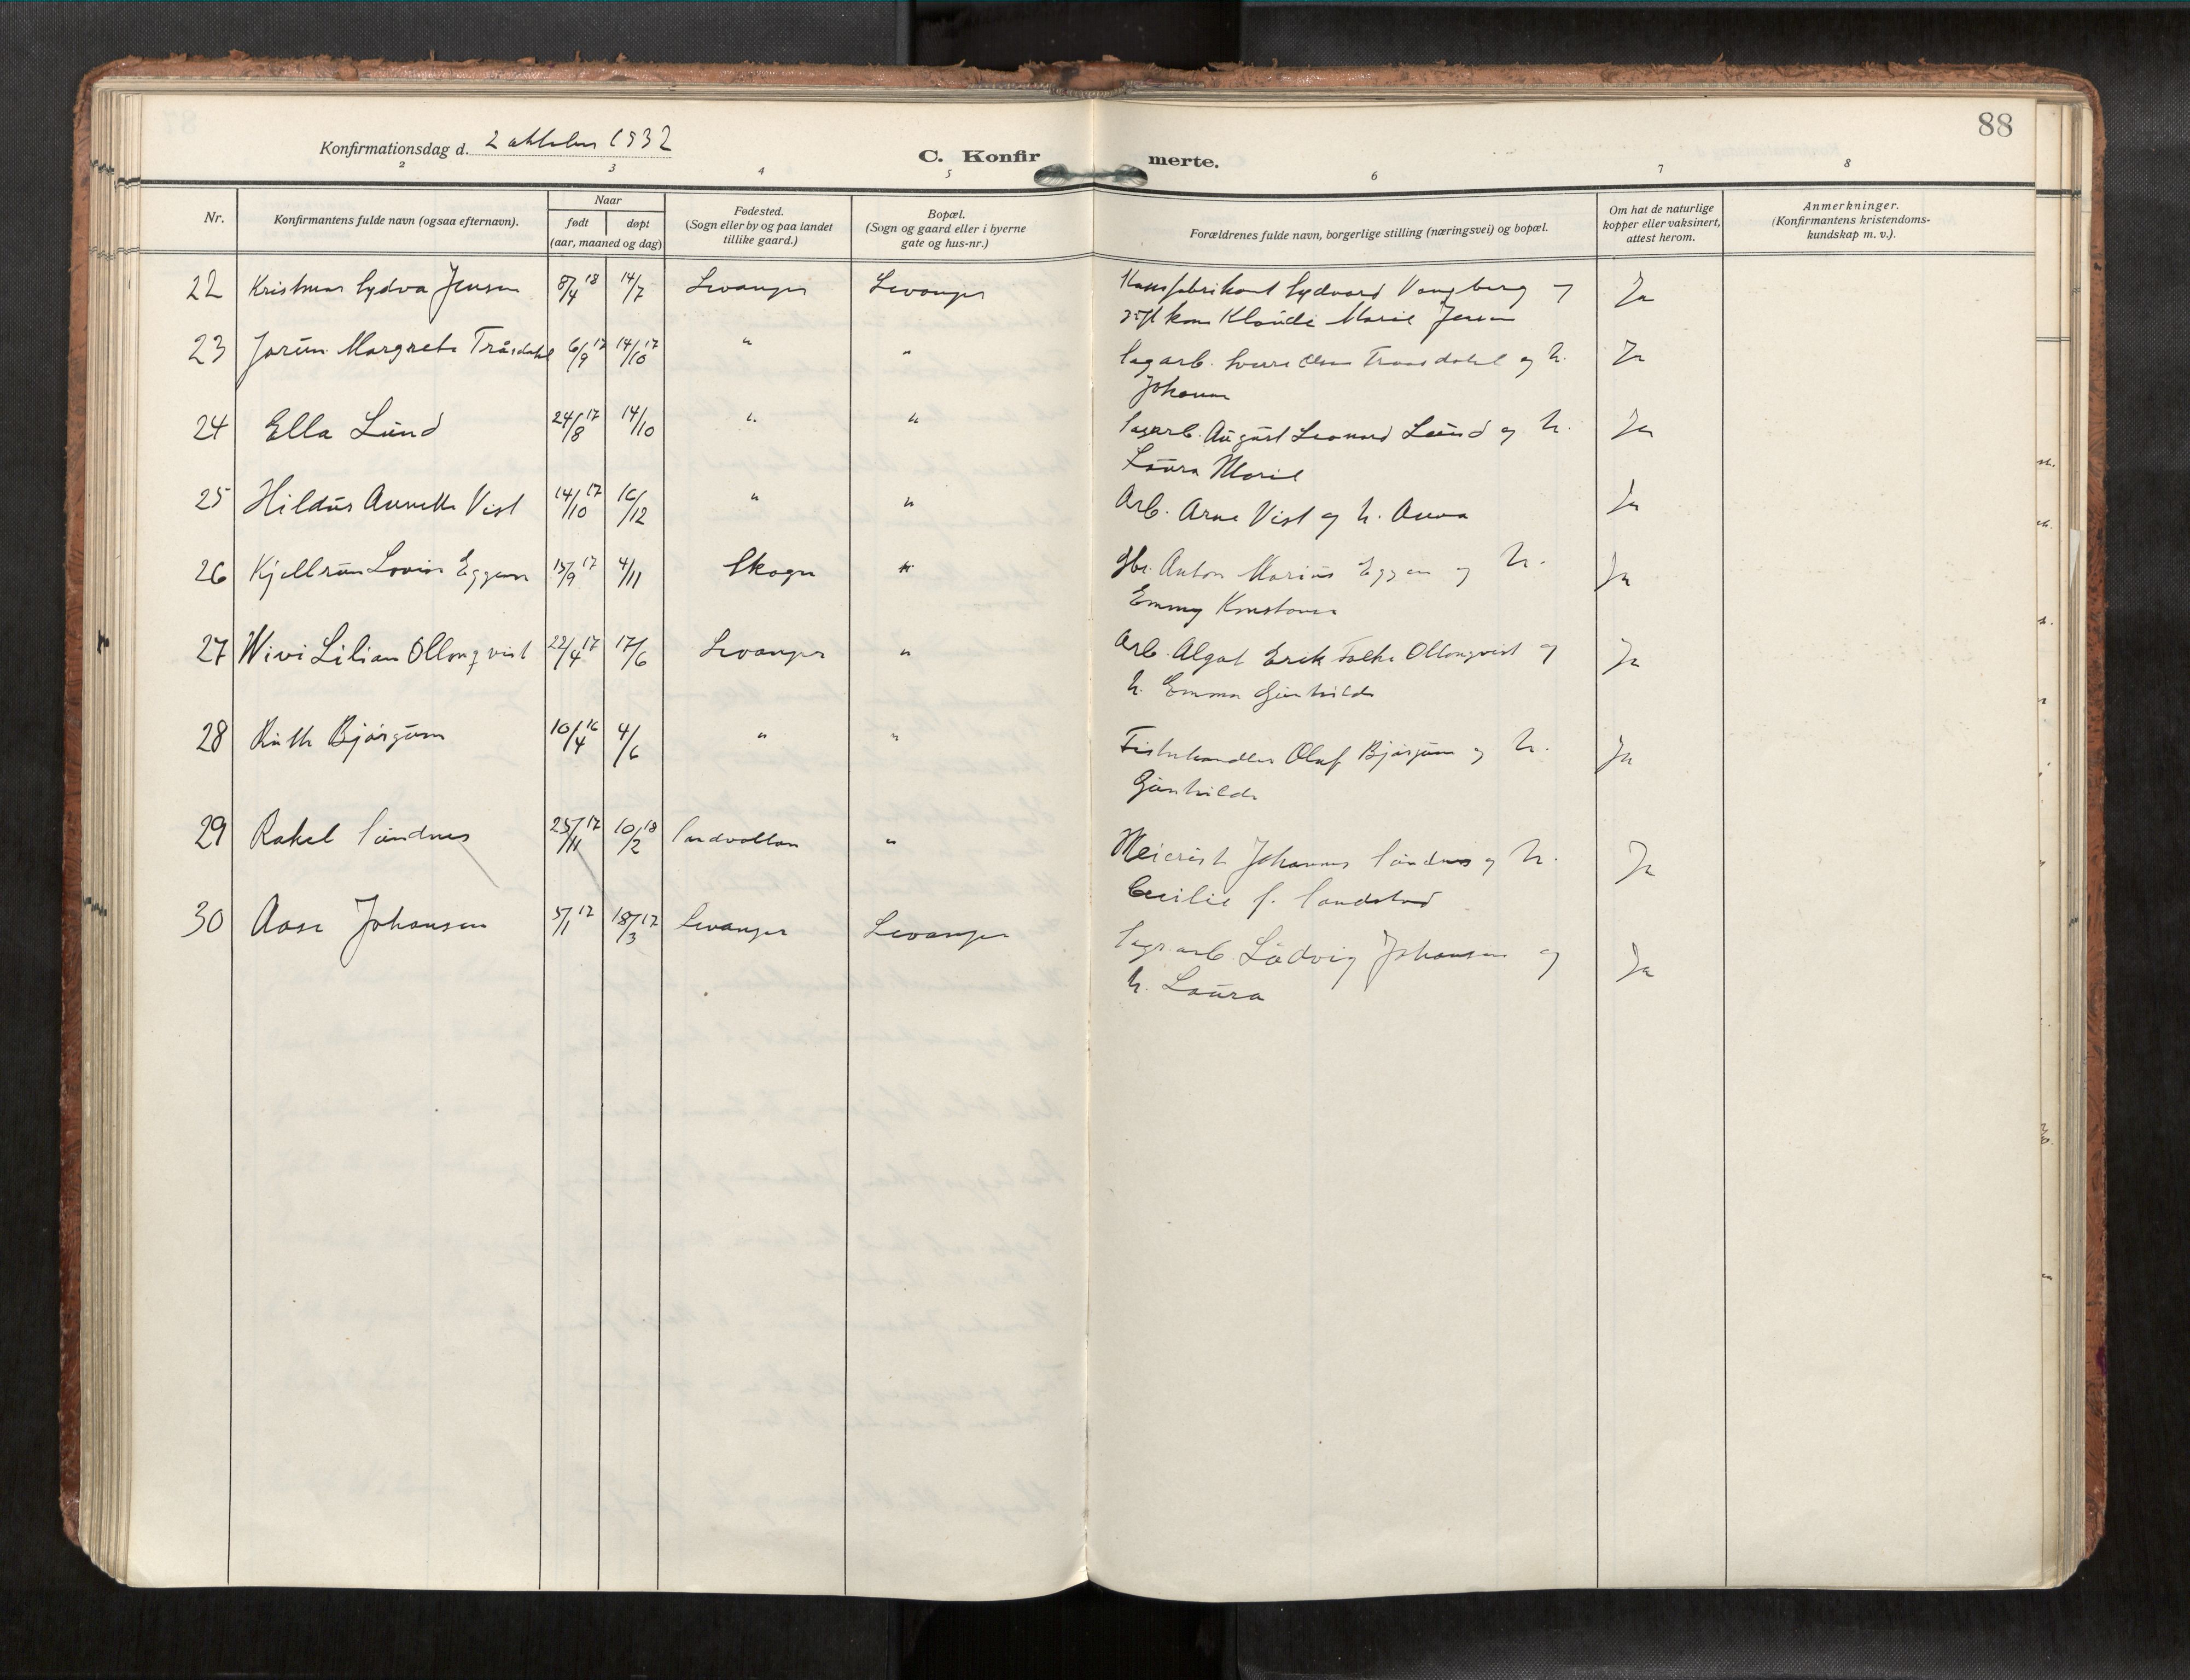 88
Konfirmationsdag d. 2 oktober 1932
C. Konfirmerte.
2 3 4 5 6 7 8
Nr.
Konfirmantens fulde navn (ogsaa efternavn).
Naar
født døpt
(aar, maaned og dag)
Fødested.
(Sogn eller by og paa landet
tillike gaard.)
Bopæl.
(Sogn og gaard eller i byerne
gate og hus-nr.)
Forældrenes fulde navn, borgerlige stilling (næringsvei) og bopæl.
Om hat de naturlige
kopper eller vaksinert,
attest herom.
Anmerkninger.
(Konfirmantens kristendoms-
kundskap m. v.).
22 Sydva Jensen 8/4 18 14/7 Levanger Levanger Sydvard Vongberg og Ja
Klaudi Marie Jensen
23 Jorun Margrete Tråsdahl 6/9 17 14/10 17 " " Sagarb. Sverre Olsen Traasdahl og h. Ja
Johanna
24 Ella Lund 24/8 17 14/10 " " Sagarb. August Leonard Lund og h. Ja
Laura Marie
25 Hildur Annette Vist 14/10 17 16/12 " " Arb. Arne Vist og h. Anna Ja
26 Kjellrun Lovise Eggen 15/9 17 4/11 Skogn " Gbr. Anton Marius Eggen og h. Ja
Emmy Konstanse
27 Wivi Lilian Ollonqvist 22/4 17 17/6 Levanger " Arb. Algot Erik Folke Ollonqvist og Ja
h. Emma Gunhilde
28 Ruth Bjørgum 10/4 16 4/6 " " Fiskehandler Olaf Bjørgum og h. Ja
Gunhilde
29 Rakel Sundnes 25/11 17 10/2 18 Sandvollan " Meierist Johannes Sundnes og h. Ja
Cecilie f. Sandstad
30 Aase Johansen 5/1 17 18/3 17 Levanger Levanger Sagarb. Ludvig Johansen og Ja
h. Laura